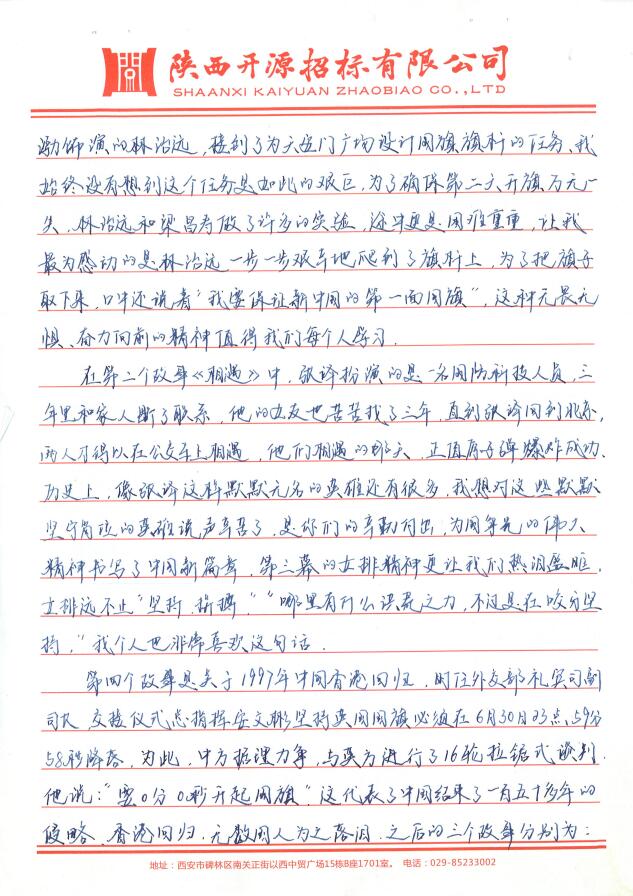 陕西开源招标有限公司
SHAANXI KAIYUAN ZHAOBIAO CO.,LTD
渤饰演的林治远，接到了为天安门广场设计国旗旗杆的任务、我
始终没有想到这个任务是如此的艰巨，为了确保第二天升旗万无一
失、林治远和梁昌寿做了许多的实验，途中更是困难重重，让我
最为感动的是林治远一步一步艰辛地爬到了旗杆上，为了把旗子
取下来，口中还说着“我要保证新中国的第一面国旗”，这种无畏无
惧、奋力向前的精神值得我们每个人学习.
在第二个故事《相遇》中，张译扮演的是一名国防科技人员，三
年里和家人断了联系，他的女友也苦苦找了三年，直到张译回到北京，
两人才得以在公交车上相遇，他们相遇的那天，正值原子弹爆炸成功、
历史上，像张译这样默默无名的英雄还有很多，我想对这些默默
坚守岗位的英雄说声辛苦了，是你们的辛勤付出，为国争光的伟大
精神书写了中国新篇章，第三幕的女排精神更让我们热泪盈眶，
女排远不止“坚持、拼搏”“哪里有什么洪荒之力，不过是在咬牙坚
持，”我个人也非常喜欢这句话.
第四个故事是关于1997年中国香港回归，时任外交部礼宾司副
司长、交接仪式总指挥安文彬坚持英国国旗必须在6月30日23点59分
58秒降落，为此，中方据理力争，与英方进行了16轮拉锯式谈判.
他说：“要0分0秒升起国旗”这代表了中国结束了一百五十多年的
侵略、香港回归、无数国人为之落泪、之后的三个故事分别为：
地址：西安市碑林区南关正街以西中贸广场15栋B座1701室。 电话：029-85233002